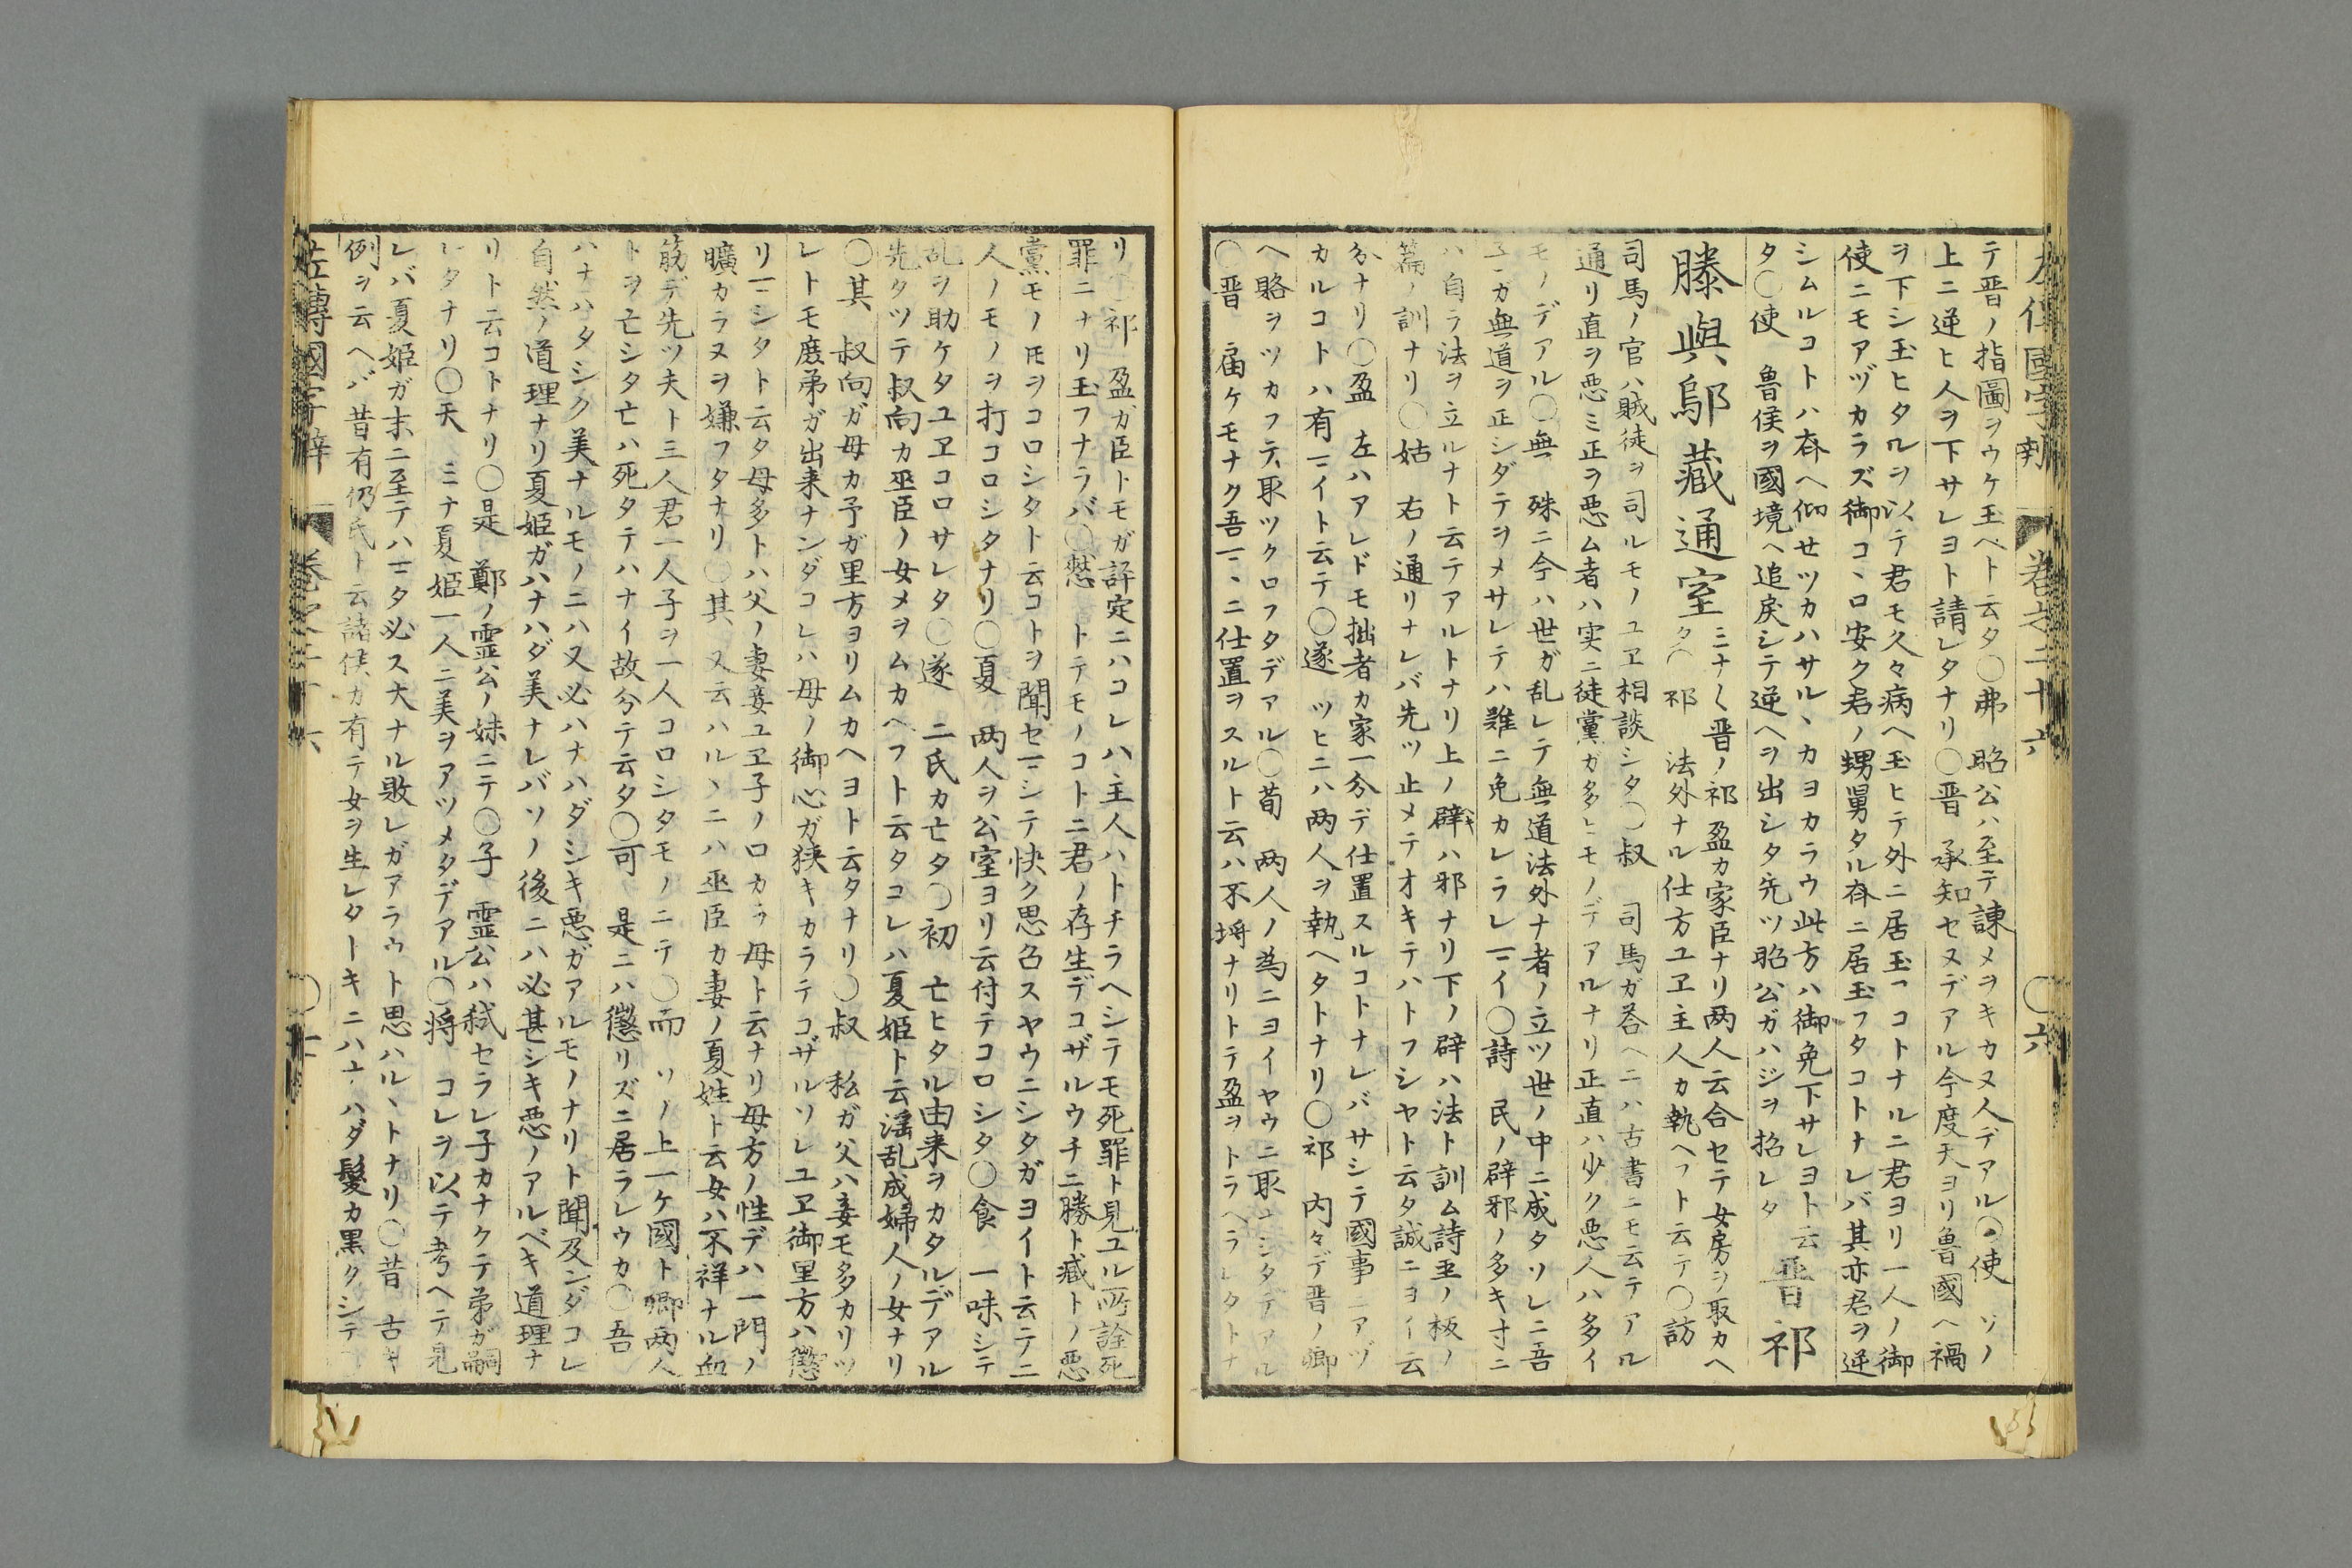 左傳國字辯 卷之二十六 〇六
テ晋ノ指圖ヲウケ玉ベト云タ〇弗 昭公ハ至テ諌メヲキカヌ人デアル〇使 ソノ
上ニ逆ヒ人ヲ下サレヨト請レタナリ〇晋 承知セヌデアル今度天ヨリ魯國ヘ禍
ヲ下シ玉ヒタルヲ以テ君モ久々病ヘ玉ヒテ外ニ居玉フコトナルニ君ヨリ一人ノ御
使ニモアヅカラズ御コヽロ安ク君ノ甥舅タル夲ニ居玉フタコトナレバ其亦君ヲ逆
シムルコトハ夲ヘ仰せツカハサルヽカヨカラウ此方ハ御免下サレヨト云
タ〇使 魯侯ヲ國境ヘ追戻シテ逆ヘヲ出シタ先ツ昭公ガハジヲ招レタ 晋祁
滕與鄔藏通室 ミナ〱晋ノ祁盈カ家臣ナリ两人云合セテ女房ヲ取カヘ
タ〇祁 法外ナル仕方ユヱ主人カ執ヘフト云テ〇訪
司馬ノ官ハ賊徒ヲ司ルモノユヱ相談シタ〇叔 司馬ガ荅ヘニハ古書ニモ云テアル
通リ直ヲ悪ミ正ヲ悪ム者ハ実ニ徒黨ガ多ヒモノデアルナリ正直ハ少ク悪人ハ多イ
モノデアル〇無 殊ニ今ハ世ガ乱レテ無道法外ナ者ノ立ツ世ノ中ニ成タソレニ吾
ユヽカ無道ヲ正シダテヲメサレテハ難ニ免カレラレマイ〇詩 民ノ辟邪ノ多キ寸ニ
ハ自ラ法ヲ立ルナト云テアルトナリ上ノ辟ハ邪ナリ下ノ辟ハ法ト訓ム詩玊ノ板ノ
篇ノ訓ナリ〇姑 右ノ通リナレバ先ツ止メテオキテハトフシヤト云タ誠ニヨイ云
分ナリ〇盈 左ハアレドモ拙者カ家一分デ仕置スルコトナレバサシテ國事ニアヅ
カルコトハ有マイト云テ〇遂 ツヒニハ两人ヲ執ヘタトナリ〇祁 内々デ晋ノ卿
ヘ賂ヲツカフテ取ツクロフタデアル〇荀 两人ノ為ニヨイヤウニ取ユシタデアル
〇晋 届ケモナク吾マヽニ仕置ヲスルト云ハ不埒ナリトテ盈ヲトラヘラレタトナ
リ〇祁 盈ガ臣トモガ評定ニハコレハ主人ハトチラヘシテモ死罪ト見ユル所詮死
罪ニナリ玉フナラバ〇憖 トテモノコトニ君ノ存生デコザルウチニ勝ト臧トノ悪
黨モノ𪜈ヲコロシタト云コトヲ聞セマシテ快ク思召スヤウニシタガヨイト云テ二
人ノモノヲ打コロシタナリ〇夏 两人ヲ公室ヨリ云付テコロシタ〇食 一味シテ
乱ヲ助ケタユヱコロサレタ〇遂 二氏カ亡タ〇初 亡ヒタル由来ヲカタルデアル
先タツテ叔向カ巫臣ノ女メヲムカヘフト云タコレハ夏姫ト云滛乱成婦人ノ女ナリ
〇其 叔向ガ母カ予ガ里方ヨリムカヘヨト云タナリ〇叔 私ガ父ハ妾モ多カリツ
レトモ庻弟ガ出来ナンダコレハ母ノ御心ガ狹キカラテコザルソレユヱ御里方ハ懲
リマシタト云タ母多トハ父ノ妻妾ユヱ子ノ口カラ母ト云ナリ母方ノ性デハ一門ノ
曠カラヌヲ嫌フタナリ〇其 又云ハルヽニハ巫臣カ妻ノ夏姓ト云女ハ不祥ナル血
筋デ先ツ夫ト三人君一人子ヲ一人コロシタモノニテ〇而 ソノ上一ケ國ト卿两人
トヲ亡シタ亡ハ死タテハナイ故分テ云タ〇可 是ニハ懲リズニ居ラレウカ〇吾
ハナハタシク美ナルモノニハ又必ハナハダシキ悪ガアルモノナリト聞及ンダコレ
自然ノ道理ナリ夏姫ガハナハダ美ナレバソノ後ニハ必甚シキ悪ノアルベキ道理ナ
リト云コトナリ〇是 鄭ノ霊公ノ妹ニテ〇子 霊公ハ弒セラレ子カナクテ弟ガ嗣
レタナリ〇天 ミナ夏姫一人ニ美ヲアツメタデアル〇将 コレヲ以テ考ヘテ見
レバ夏姫ガ末ニ至テハマタ必ス大ナル敗レガアラウト思ハルヽトナリ〇昔 古キ
例ヲ云ヘバ昔有仍氏ト云諸侯カ有テ女ヲ生レタトキニハナハダ髮カ黒クシテ
左傳國字辯 卷之二十六